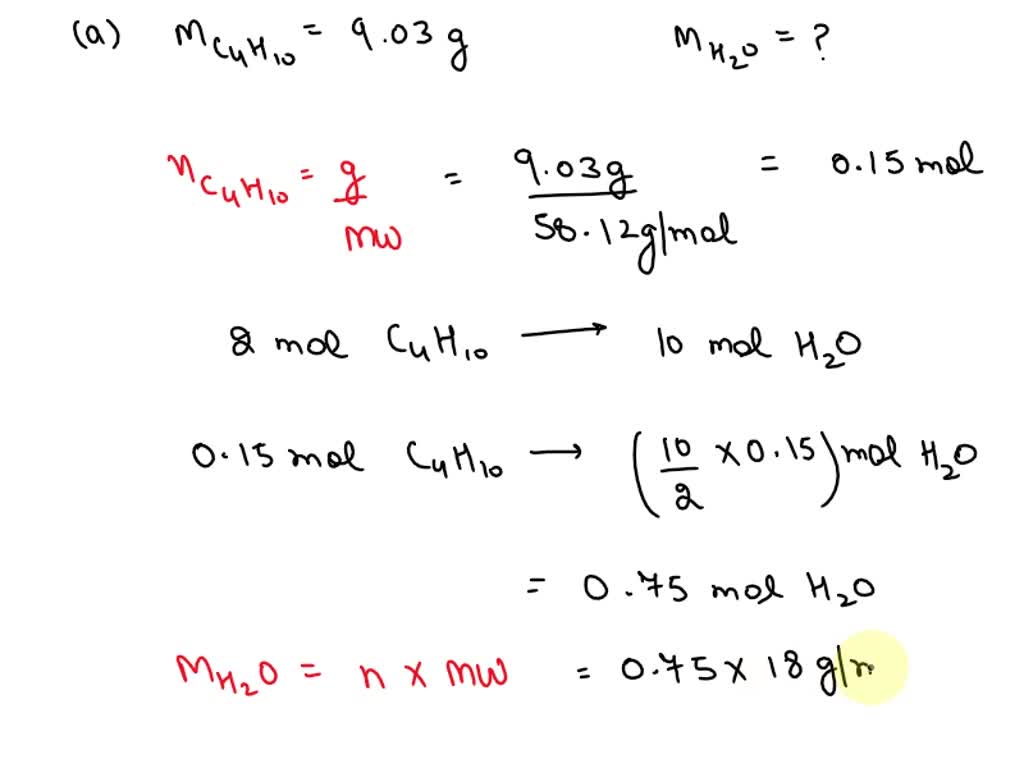 (a) m C₄H₁₀ = 9.03 g    m H₂O = ?
n C₄H₁₀ = g/mw = 9.03g/58.12g/mol = 0.15 mol
2 mol C₄H₁₀ ⟶ 10 mol H₂O
0.15 mol C₄H₁₀ ⟶ (10/2 × 0.15) mol H₂O
= 0.75 mol H₂O
m H₂O = n × mw = 0.75 × 18 g/m